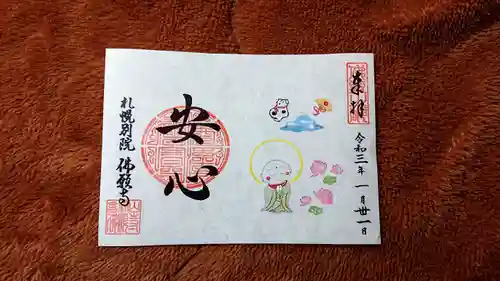 奉拝
令和三年一月卅一日
安心
札幌別院 佛願寺